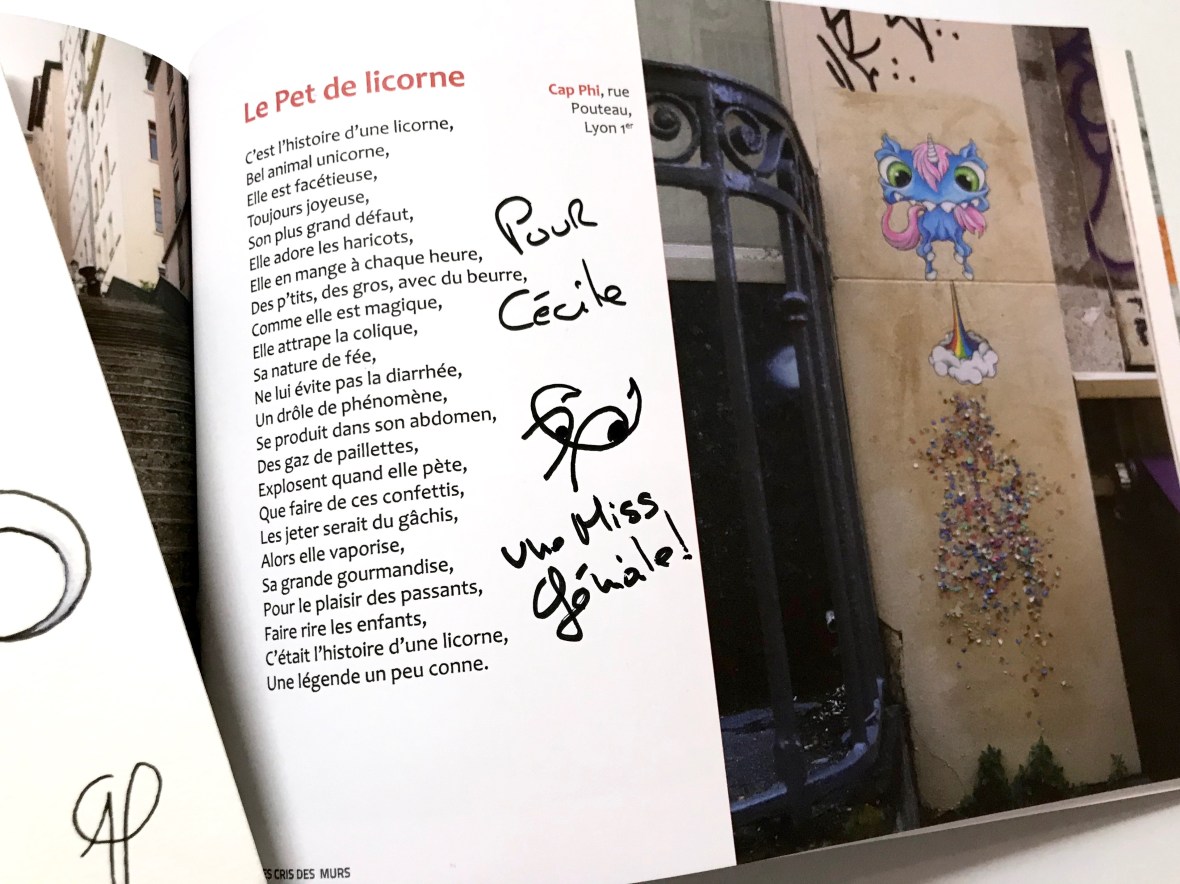 Le Pet de licorne
C'est l'histoire d'une licorne,
Bel animal unicorne,
Elle est facétieuse,
Toujours joyeuse,
Son plus grand défaut,
Elle adore les haricots,
Elle en mange à chaque heure,
Des p'tits, des gros, avec du beurre,
Comme elle est magique,
Elle attrape la colique,
Sa nature de fée,
Ne lui évite pas la diarrhée,
Un drôle de phénomène,
Se produit dans son abdomen,
Des gaz de paillettes,
Explosent quand elle pète,
Que faire de ces confettis,
Les jeter serait du gâchis,
Alors elle vaporise,
Sa grande gourmandise,
Pour le plaisir des passants,
Faire rire les enfants,
C'était l'histoire d'une licorne,
Une légende un peu conne.
Cap Phi, rue
Pouteau,
Lyon 1er
Pour
Cécile
une Miss
Géniale!
ES CRIS DES MURS